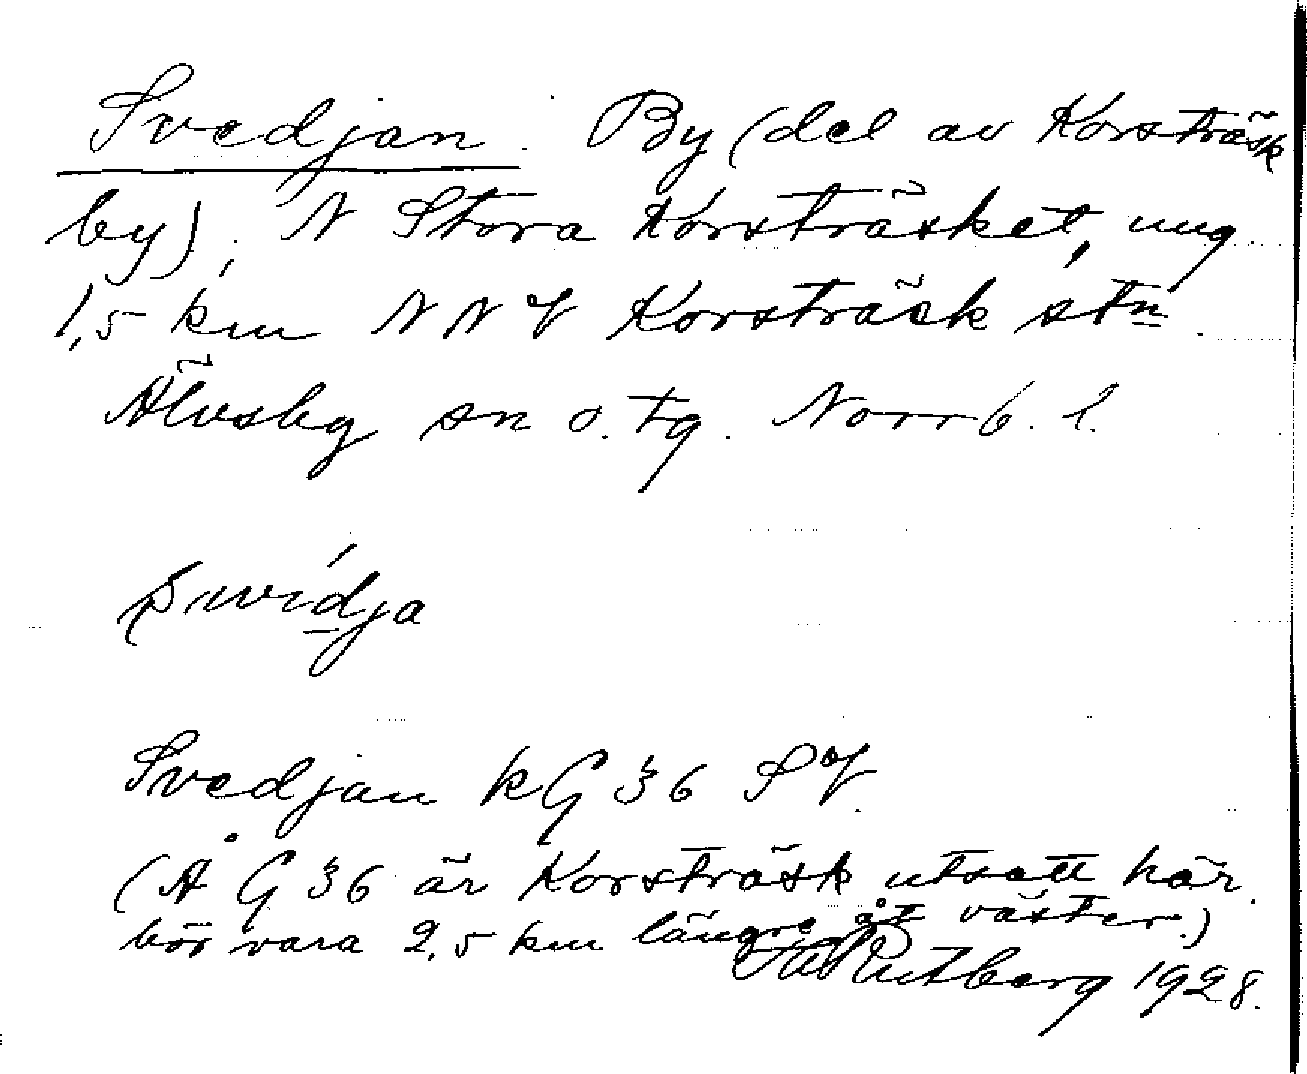 Svedjan. By (del av Korsträsk
by), N Stora Korsträsket, ung
1,5 km NNV Korsträsk stn.
Älvsby sn o. tg. Norrb. l.
svidja
Svedjan kG 36 SV.
(Å G 36 är Korsträsk utsatt här.
bör vara 2,5 km längre åt väster.)
Rutberg 1928.